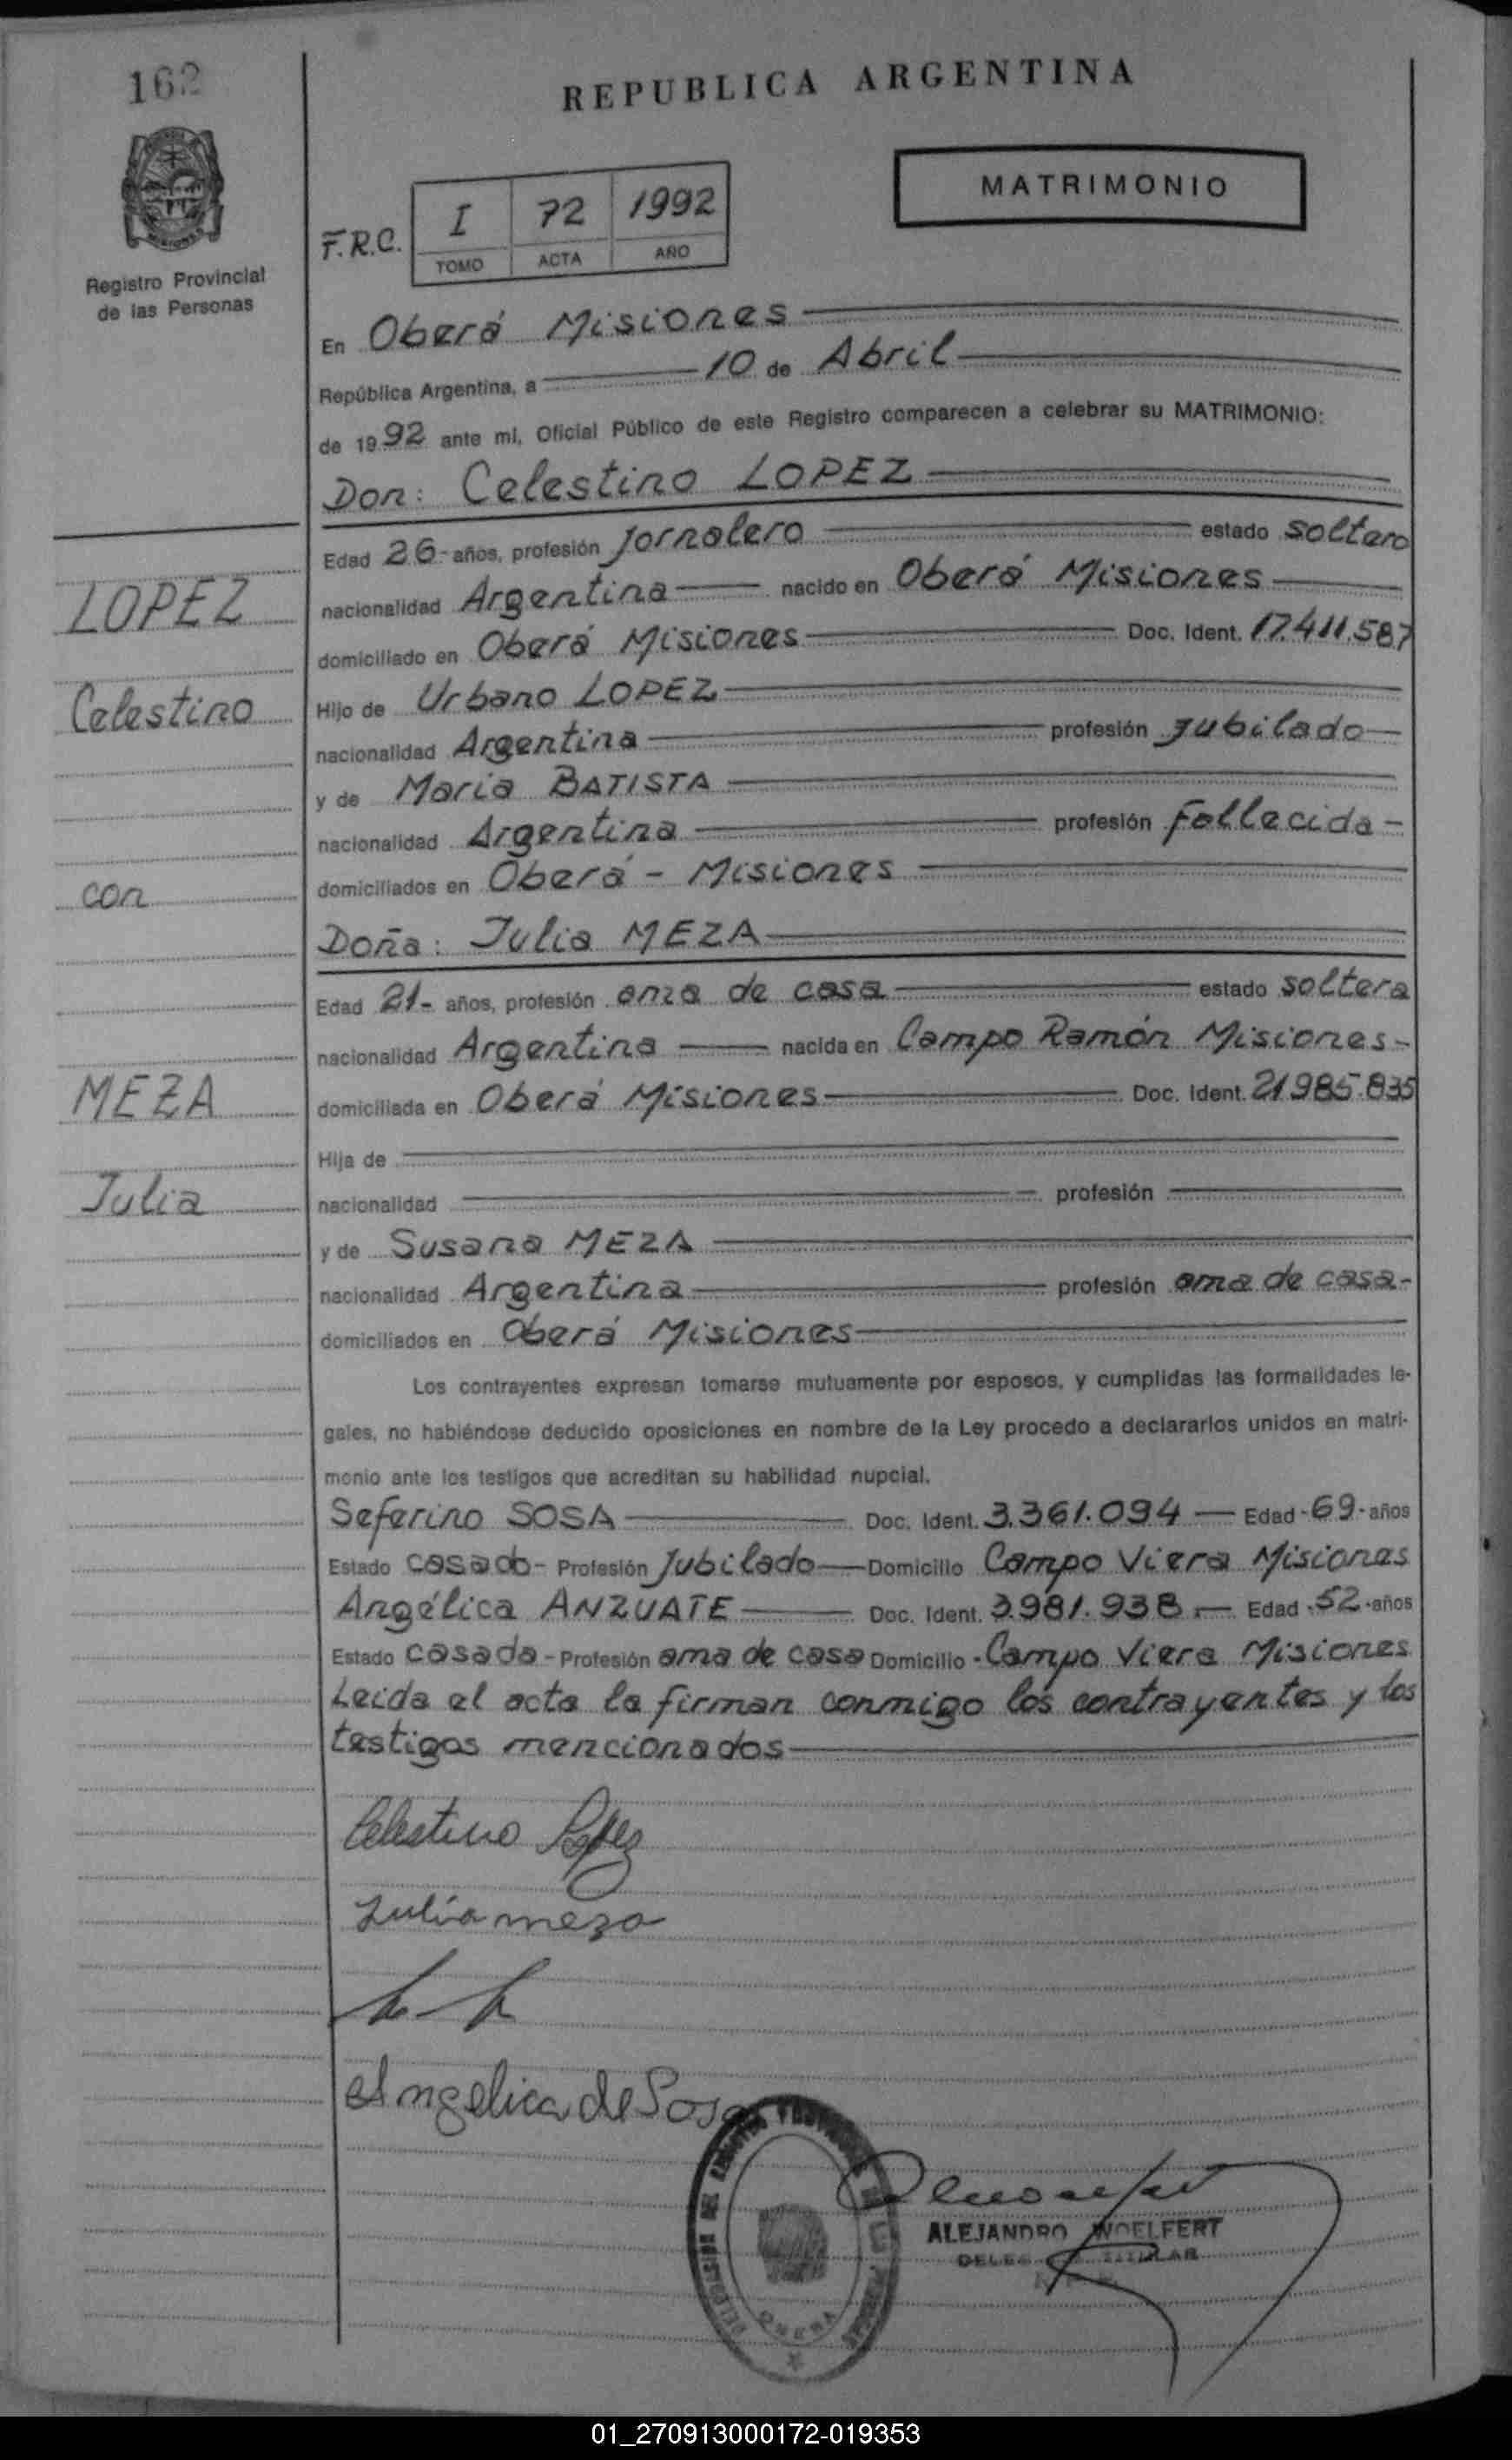 162
REPUBLICA ARGENTINA
MATRIMONIO
Registro Provincial
de las Personas
F.R.C.
I 72 1992
TOMO ACTA AÑO
En Oberá Misiones
República Argentina, a 10 de Abril
de 1992 ante mi, Oficial Público de este Registro comparecen a celebrar su MATRIMONIO:
Don: Celestino LOPEZ
Edad 26- años, profesión Jornalero estado soltero
nacionalidad Argentina nacido en Oberá Misiones
domiciliado en Oberá Misiones Doc. Ident. 17.411.587
Hijo de Urbano LOPEZ
nacionalidad Argentina profesión Jubilado
y de Maria BATISTA
nacionalidad Argentina profesión Fallecida -
domiciliados en Oberá - Misiones
Doña: Julia MEZA
Edad 21- años, profesión ama de casa estado soltera
nacionalidad Argentina nacida en Campo Ramón Misiones-
domiciliada en Oberá Misiones Doc. Ident. 21.985.835
Hija de
nacionalidad profesión
y de Susana MEZA
nacionalidad Argentina profesión ama de casa-
domiciliados en Oberá Misiones
LOPEZ
Celestino
con
MEZA
Julia
Los contrayentes expresan tomarse mutuamente por esposos, y cumplidas las formalidades le-
gales, no habiéndose deducido oposiciones en nombre de la Ley procedo a declararlos unidos en matri-
monio ante los testigos que acreditan su habilidad nupcial.
Seferino SOSA Doc. Ident. 3.361.094 Edad -69- años
Estado casado- Profesión Jubilado Domicilio Campo Viera Misiones
Angélica ANZUATE Doc. Ident. 3.981.938.- Edad -52-años
Estado casada- Profesión ama de casa Domicilio - Campo Viera Misiones
Leida el acta la firman conmigo los contrayentes y los
testigos mencionados
Celestino Lopez
Julia meza
Angelica de Sosa
ALEJANDRO WOELFERT
TITULAR
OBERA
01_270913000172-019353